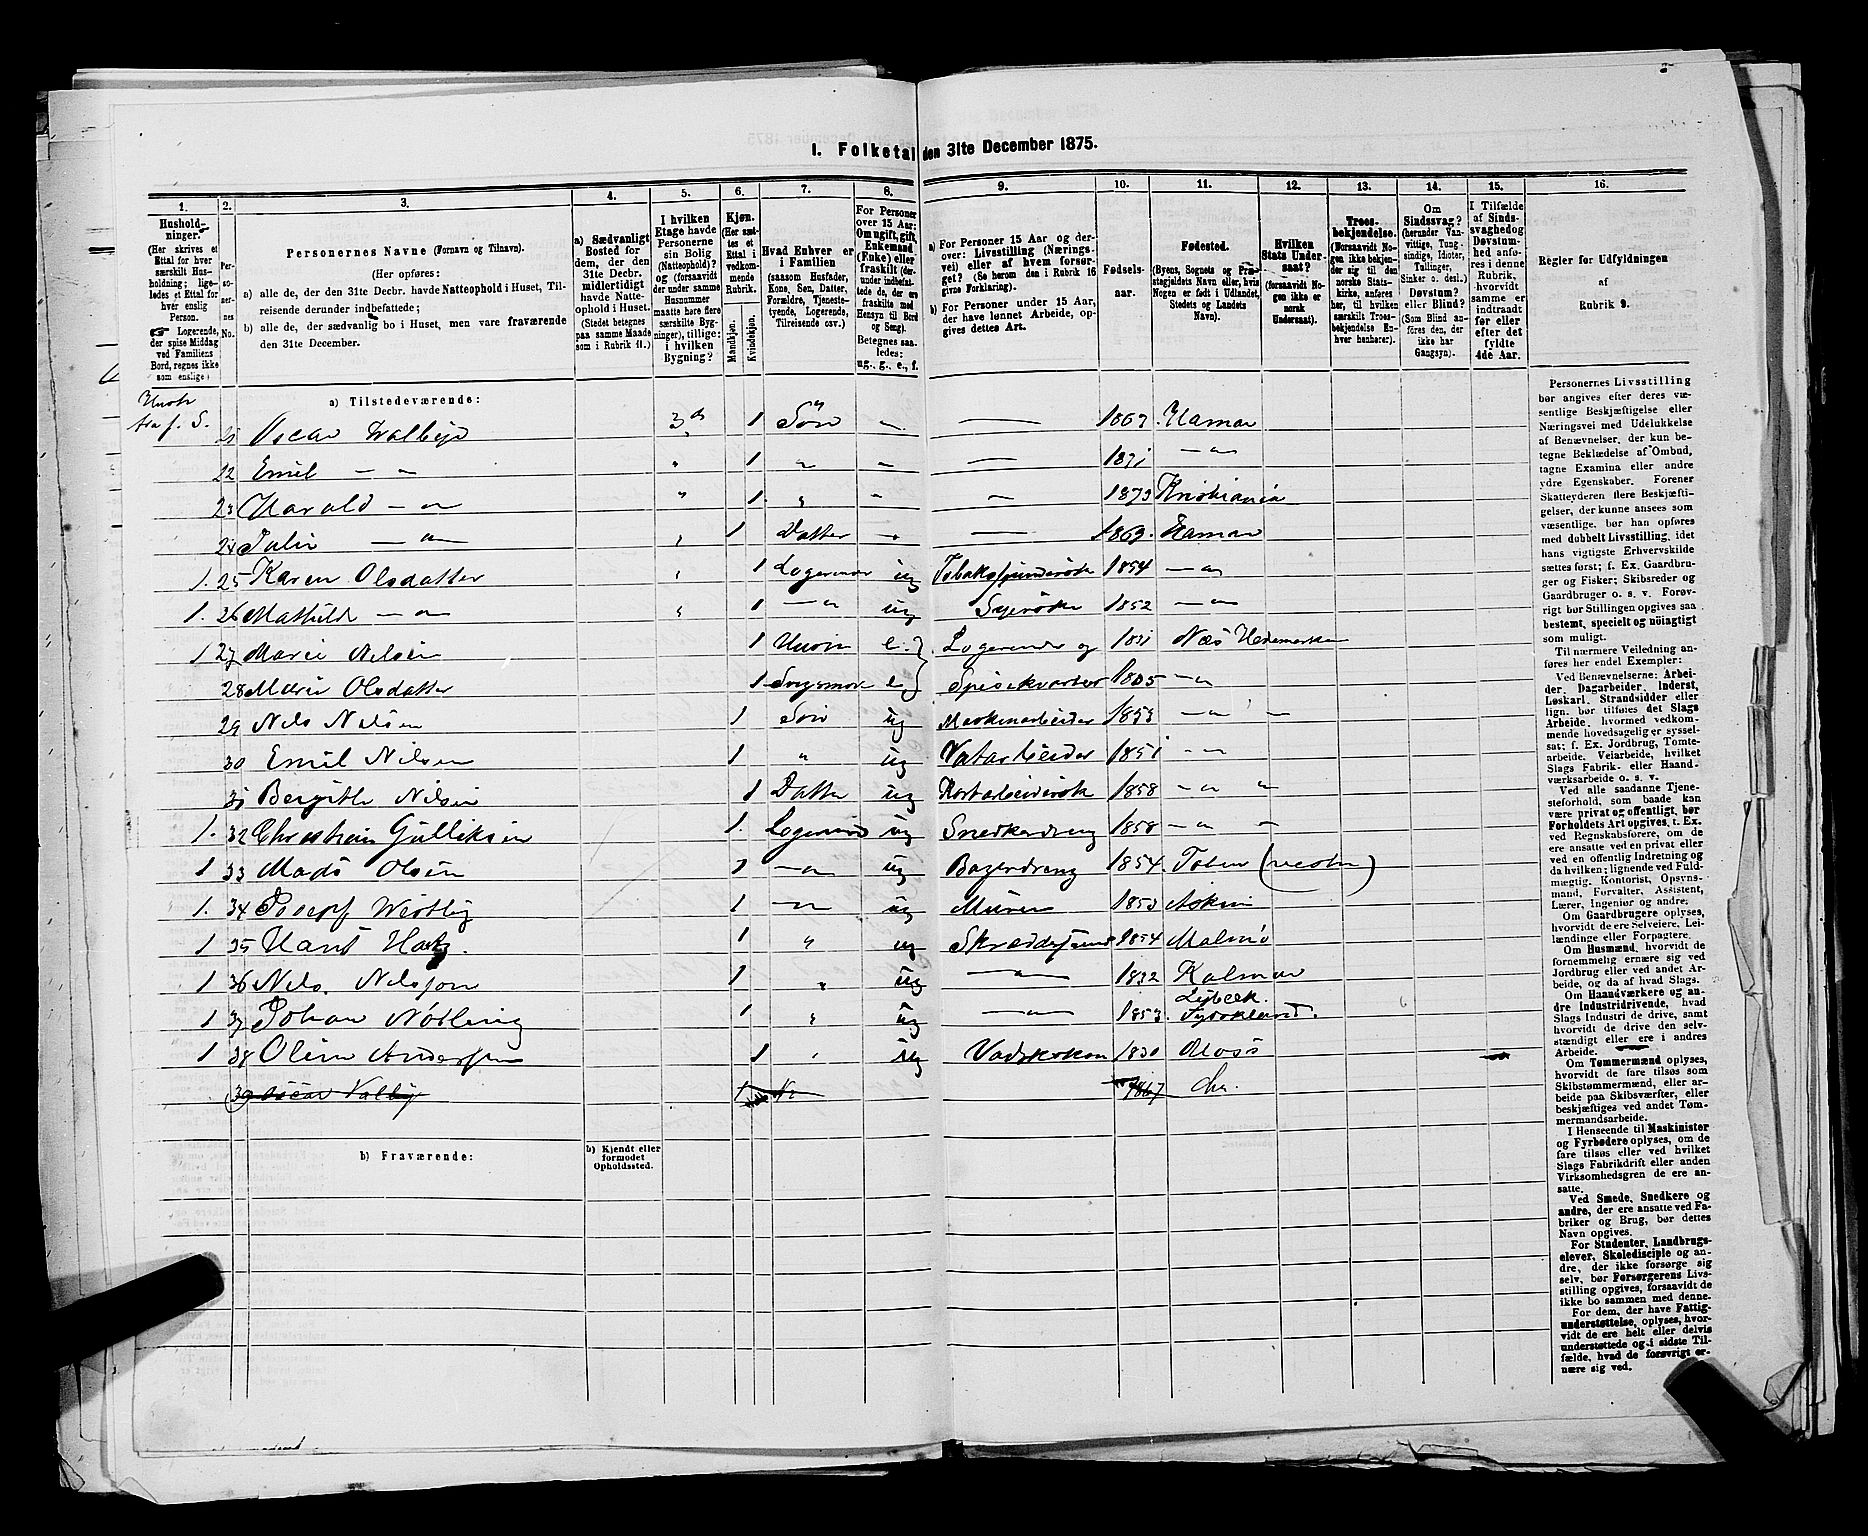 I. Folketal den 31te December 1875.
1. 2. 3. 4. 5. 6. 7. 8. 9. 10. 11. 12. 13. 14. 15. 16.
Hushold-
ninger.
(Her skrives et
Ettal for hver
særskilt Hus-
holdning; lige-
ledes et Ettal for
hver enslig
Person.
☞ Logerende,
der spise Middag
ved Familiens
Bord, regnes ikke
som enslige)
Per-
so-
ner-
nes
No.
Personernes Navne (Fornavn og Tilnavn).
(Her opføres:
a) alle de, der den 31te Decbr. havde Natteophold i Huset, Til-
reisende derunder indbefattede;
b) alle de, der sædvanlig bo i Huset, men vare fraværende
den 31te December.
a) Sædvanligt
Bosted for
dem, der den
31te Decbr.
midlertidigt
havde Natte-
ophold i Huset.
(Stedet betegnes
paa samme Maade
som i Rubrik 11.)
I hvilken
Etage havde
Personerne
sin Bolig
(Natteophold)?
og (forsaavidt
der under samme
Husnommer
maatte høre flere
særskilte Byg-
ninger), tillige:
i hvilken
Bygning?
Kjøn.
(Her sæt-
tes et
Ettal i
vedkom-
mende
Rubrik.
Mandkjøn.
Kvindekjøn.
Hvad Enhver er
i Familien
(saasom Husfader,
Kone, Søn, Datter,
Forældre, Tjeneste-
tyende, Logerende,
Tilreisende osv.)
For Personer
over 15 Aar:
Om ugift, gift,
Enkemand
(Enke) eller
fraskilt (der-
under indbefat-
tede de, der ere
fraskilte med
Hensyn til Bord
og Seng).
Betegnes saa-
ledes:
ug., g., e., f.
a) For Personer 15 Aar og der-
over: Livsstilling (Nærings-
vei) eller af hvem forsør-
get? (Se herom den i Rubrik 16
givne Forklaring).
b) For Personer under 15 Aar,
der have lønnet Arbeide, op-
gives dettes Art.
Fødsels-
aar.
Fødested.
(Byens, Sognets og Præ-
stegjeldets Navn eller, hvis
Nogen er født i Udlandet,
Stedets og Landets
Navn).
Hvilken
Stats Under-
saat?
(forsaavidt No-
gen ikke er
norsk
Undersaat).
Troes-
bekjendelse.
(Forsaavidt No-
gen ikke bekjen-
der sig til den
norske Stats-
kirke, anføres
her, til hvilken
særskilt Troes-
bekjendelse En-
hver henhører).
Om
Sindssvag?
(herunder Van-
vittige, Tung-
sindige, Idioter,
Tullinger,
Sinker o. desl.)
Døvstum?
eller Blind?
(Som Blind an-
føres den, der
ikke har
Gangsyn).
I Tilfælde
af Sinds-
svaghed og
Døvstum-
hed anfø-
res i denne
Rubrik,
hvorvidt
samme er
indtraadt
før eller
efter det
fyldte
4de Aar.
Regler for Udfyldningen
af
Rubrik 9.
a) Tilstedeværende:
21 Oscar Walbye 3 1 Søn — — 1867. Hamar
22 Emil — " — " 1 " — — 1871 — " —
23 Harald — " — " 1. " — — 1873 Kristiania
24 Julie — " — " 1 Datter — — 1869. Hamar
1. 25 Karen Olsdatter " 1 Logerende ug Tobakspinderske 1854 — " —
1. 26 Mathilde — " — " 1 — " — ug Syerske 1852 — " —
1 27 Marie Nilsen 1 e. Logerende og Næs Hedemarken
28 Marie Olsdatter 1 Svigermor e Spisekvarter 1805 — " —
29 Nils Nilsen 1 Søn ug 1853 — " — —
30 Emil Nilsen 1 " ug Vatarbeider 1851 — " —
31 Bergithe Nilsen 1 Datter ug 1858 — " — "
1. 32 Christian Gulliksen 1. Logerende ug Snedkerdreng 1858 — " — —
1 33 Mads Olsen 1 — " — ug Bagerdreng 1854. Toten
1. 34 Josepf Westby 1 — " — ug Murer 1853 Askim
1 35 Hans 1 " ug 1854 Malmø
1 36 Nils Nilsson 1 " ug — " — 1832 Kalmar
1 37 Johan Nötling 1 " ug — " — 1853. Lybeck. Tyskland.
1 38 Oline Andersen 1 " ug Vadskekone 1830 Moss
39 Oscar Valbye 1 1867 Chr.
b) Fraværende:
b) Kjendt eller
formodet
Opholdssted.
Personernes Livsstilling
bør angives efter deres væ-
sentlige Beskjæftigelse eller
Næringsvei med Udelukkelse
af Benævnelser, der kun be-
tegne Beklædelse af Ombud,
tagne Examina eller andre
ydre Egenskaber. Forener
Skatteyderen flere Beskjæfti-
gelser, der kunne ansees som
væsentlige, bør han opføres
med dobbelt Livsstilling, idet
hans vigtigste Erhvervskilde
sættes først; f. Ex. Gaardbru-
ger og Fisker; Skibsreder og
Gaardbruger o. s. v. Forøv-
rigt bør Stillingen opgives saa
bestemt, specielt og nøiagtigt
som muligt.
Til nærmere Veiledning an-
føres her endel Exempler:
Ved Benævnelserne: Arbei-
der, Dagarbeider, Inderst,
Løskarl, Strandsidder eller
lign. bør tilføies det Slags
Arbeide, hvormed vedkom-
mende hovedsagelig er syssel-
sat; f. Ex. Jordbrug, Tomte-
arbeide, Veiarbeide, hvilket
Slags Fabrik- eller Haand-
værksarbeide o. s. v.
Ved alle saadanne Tjene-
steforhold, som baade kan
være privat og offentligt, bør
Forholdets Art opgives, t. Ex.
ved Regnskabsførere, om de
ere ansatte ved en privat eller
ved en offentlig Indretning og
da hvilken; lignende ved Fuld-
mægtig, Kontorist, Opsyns-
mand, Forvalter, Assistent,
Lærer, Ingeniør og andre;
Om Gaardbrugere oplyses,
hvorvidt de ere Selveiere, Lei-
lændinge eller Forpagtere.
Om Husmænd, hvorvidt de
fornemmelig ernære sig ved
Jordbrug eller ved andet Ar-
beide, og da af hvad Slags.
Om Haandværkere og an-
dre Industridrivende, hvad
Slags Industri de drive, samt
hvorvidt de drive den selv-
stændigt eller ere i andres
Arbeide.
Om Tømmermænd oplyses,
hvorvidt de fare tilsøs som
Skibstømmermænd, eller ar-
beide paa Skibsværfter, eller
beskjæftiges ved andet Tøm-
mermandsarbeide.
I Henseende til Maskinister
og Fyrbødere oplyses, om de
fare tilsøs eller ved hvilket
Slags Fabrikdrift eller anden
Virksomhedsgren de ere an-
satte.
Ved Smede, Snedkere og
andre, der ere ansatte ved Fa-
briker og Brug, bør dettes
Navn opgives.
For Studenter, Landbrugs-
elever, Skoledisciple og an-
dre, der ikke forsørge sig
selv, bør Forsørgerens Livs-
stilling opgives, forsaavidt de
ikke bo sammen med denne.
For dem, der have Fattig-
understøttelse, oplyses, hvor-
vidt de ere helt eller delvis
understøttede og i sidste Til-
fælde, hvad de forøvrigt er-
nære sig ved.